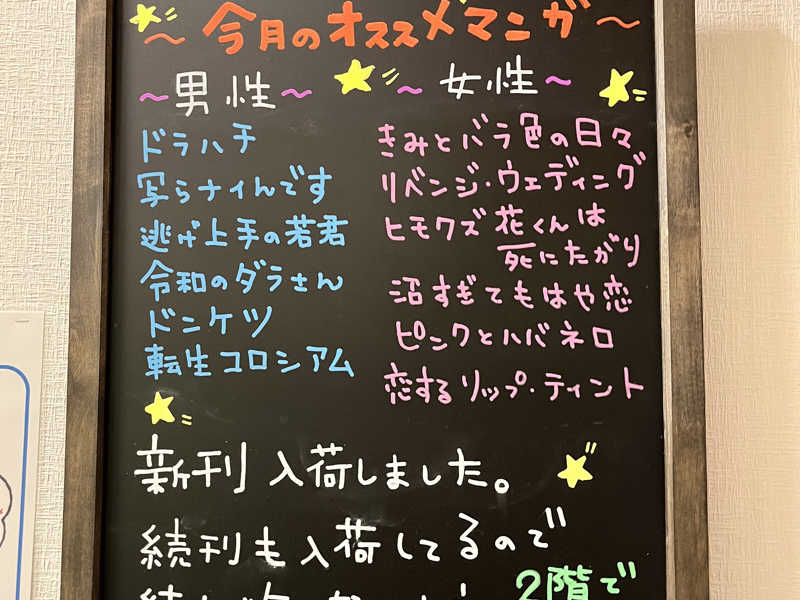 ～今月のオススメマンガ～
～男性～
ドラハチ
写らナイんです
逃げ上手の若君
令和のダラさん
ドンケツ
転生コロシアム
～女性～
きみとバラ色の日々
リベンジ・ウェディング
ヒモクズ花くんは
死にたがり
沼すぎてもはや恋
ピンクとハバネロ
恋するリップ・ティント
新刊入荷しました。
続刊も入荷してるので
2階で